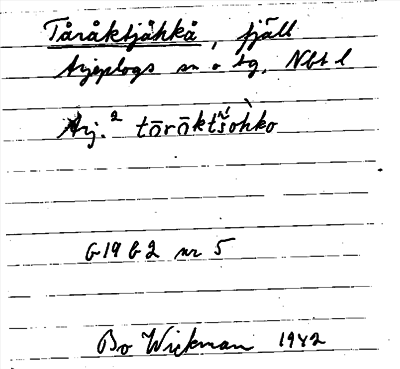 Tåråktjåhkå, fjäll
Arjeplogs sn o tg, Nbt l
Arj.² tōrōktšohko
G 19 b 2 nr 5
Bo Wickman 1942